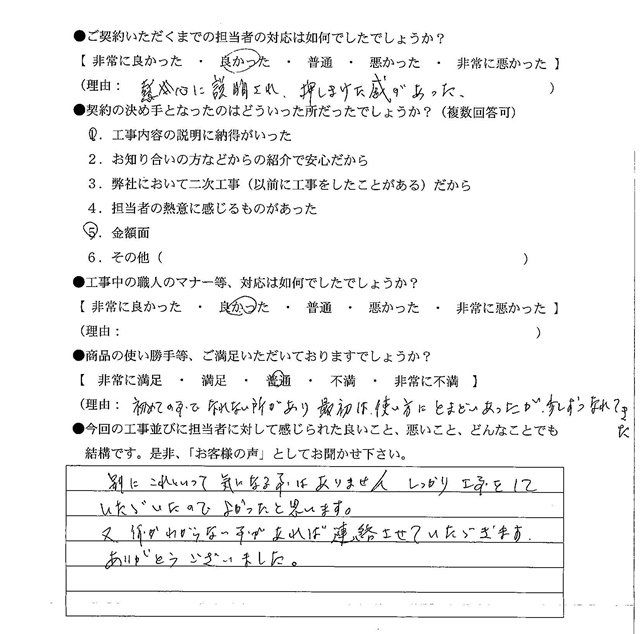 ●ご契約いただくまでの担当者の対応は如何でしたでしょうか？
【 非常に良かった ・ 良かった ・ 普通 ・ 悪かった ・ 非常に悪かった 】
（理由： 熱心に説明され、押しまけた感があった、 ）
●契約の決め手となったのはどういった所だったでしょうか？（複数回答可）
1．工事内容の説明に納得がいった
2．お知り合いの方などからの紹介で安心だから
3．弊社において二次工事（以前に工事をしたことがある）だから
4．担当者の熱意に感じるものがあった
5．金額面
6．その他（ ）
●工事中の職人のマナー等、対応は如何でしたでしょうか？
【 非常に良かった ・ 良かった ・ 普通 ・ 悪かった ・ 非常に悪かった 】
（理由： ）
●商品の使い勝手等、ご満足いただいておりますでしょうか？
【 非常に満足 ・ 満足 ・ 普通 ・ 不満 ・ 非常に不満 】
（理由： 初めての事でなれない所があり最初は、使い方にとまどいあったが、少しずつなれてきた
●今回の工事並びに担当者に対して感じられた良いこと、悪いこと、どんなことでも
結構です。是非、「お客様の声」としてお聞かせ下さい。
別にこれといって気になる事はありません しっかり工事をして
いただいたのでよかったと思います。
又 何かわからない事があれば連絡させていただきます。
ありがとうございました。